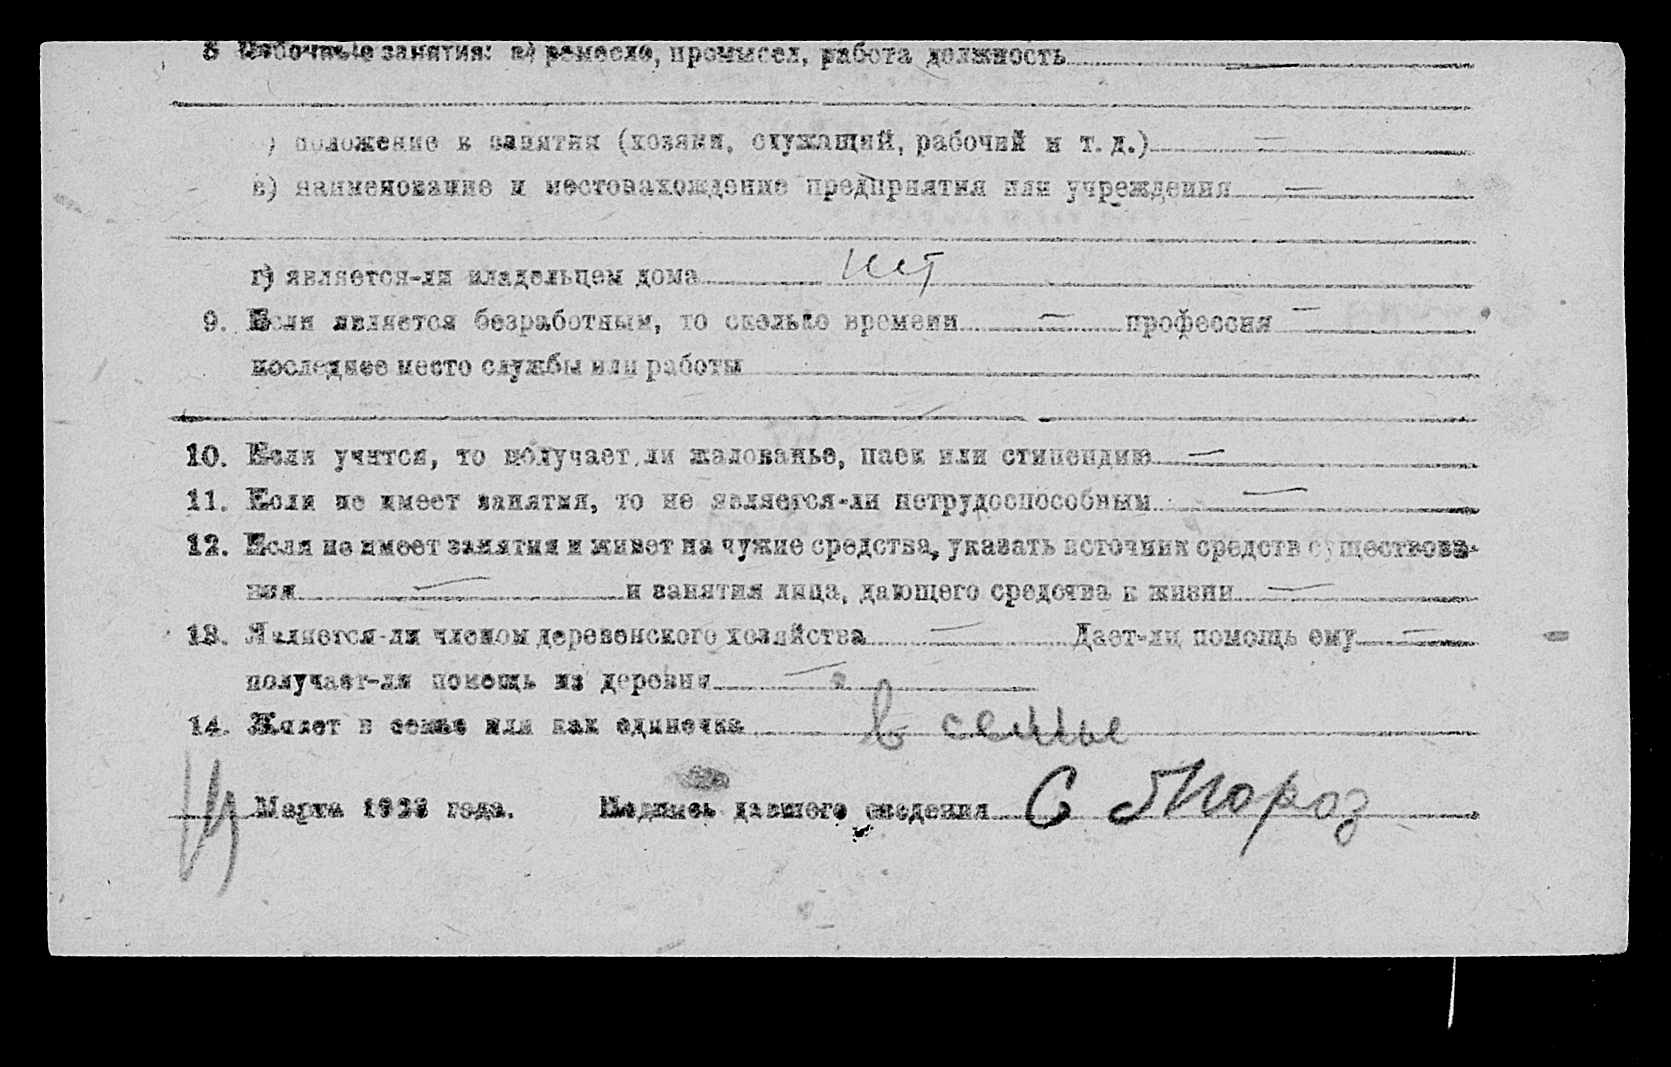 8 Побочные занятия: а) ремесло, промысел, работа должность
) положение в занятии (хозяин, служащий, рабочий и т. д.) —
в) наименование и местонахождение предприятия или учреждения —
г) является-ли владельцем дома нет
9. Если является безработным, то сколько времени — профессия —
последнее место службы или работы
10. Если учится, то получает ли жалованье, паек или стипендию —
11. Если не имеет занятия, то не является-ли нетрудоспособным —
12. Если не имеет занятия и живет на чужие средства, указать источник средств существова-
ния — и занятия лица, дающего средства к жизни —
13. Является-ли членом деревенского хозяйства — Дает-ли помощь ему —
получает-ли помощь из деревни —
14. Живет в семье или как единочка в семье
Марта 1923 года. Подпись давшего сведения С Мороз